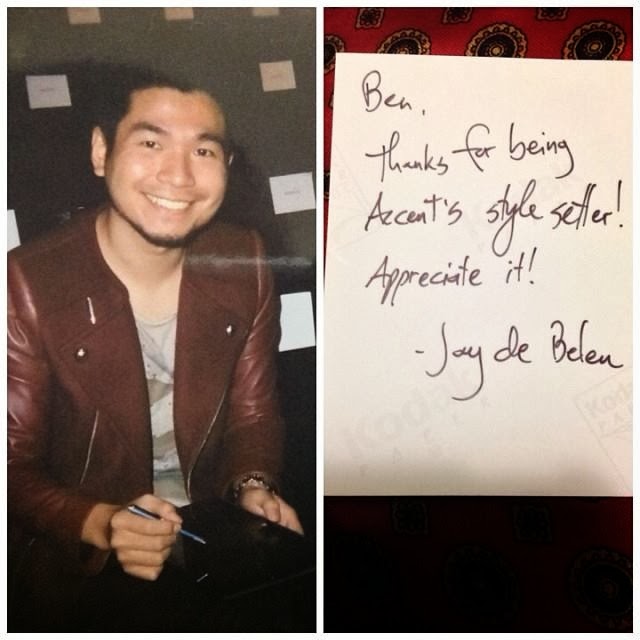 Ben,
Thanks for being
Axcent's style setter!
Appreciate it!
- Jay de Belen
Kodak
PAPER
Kodak